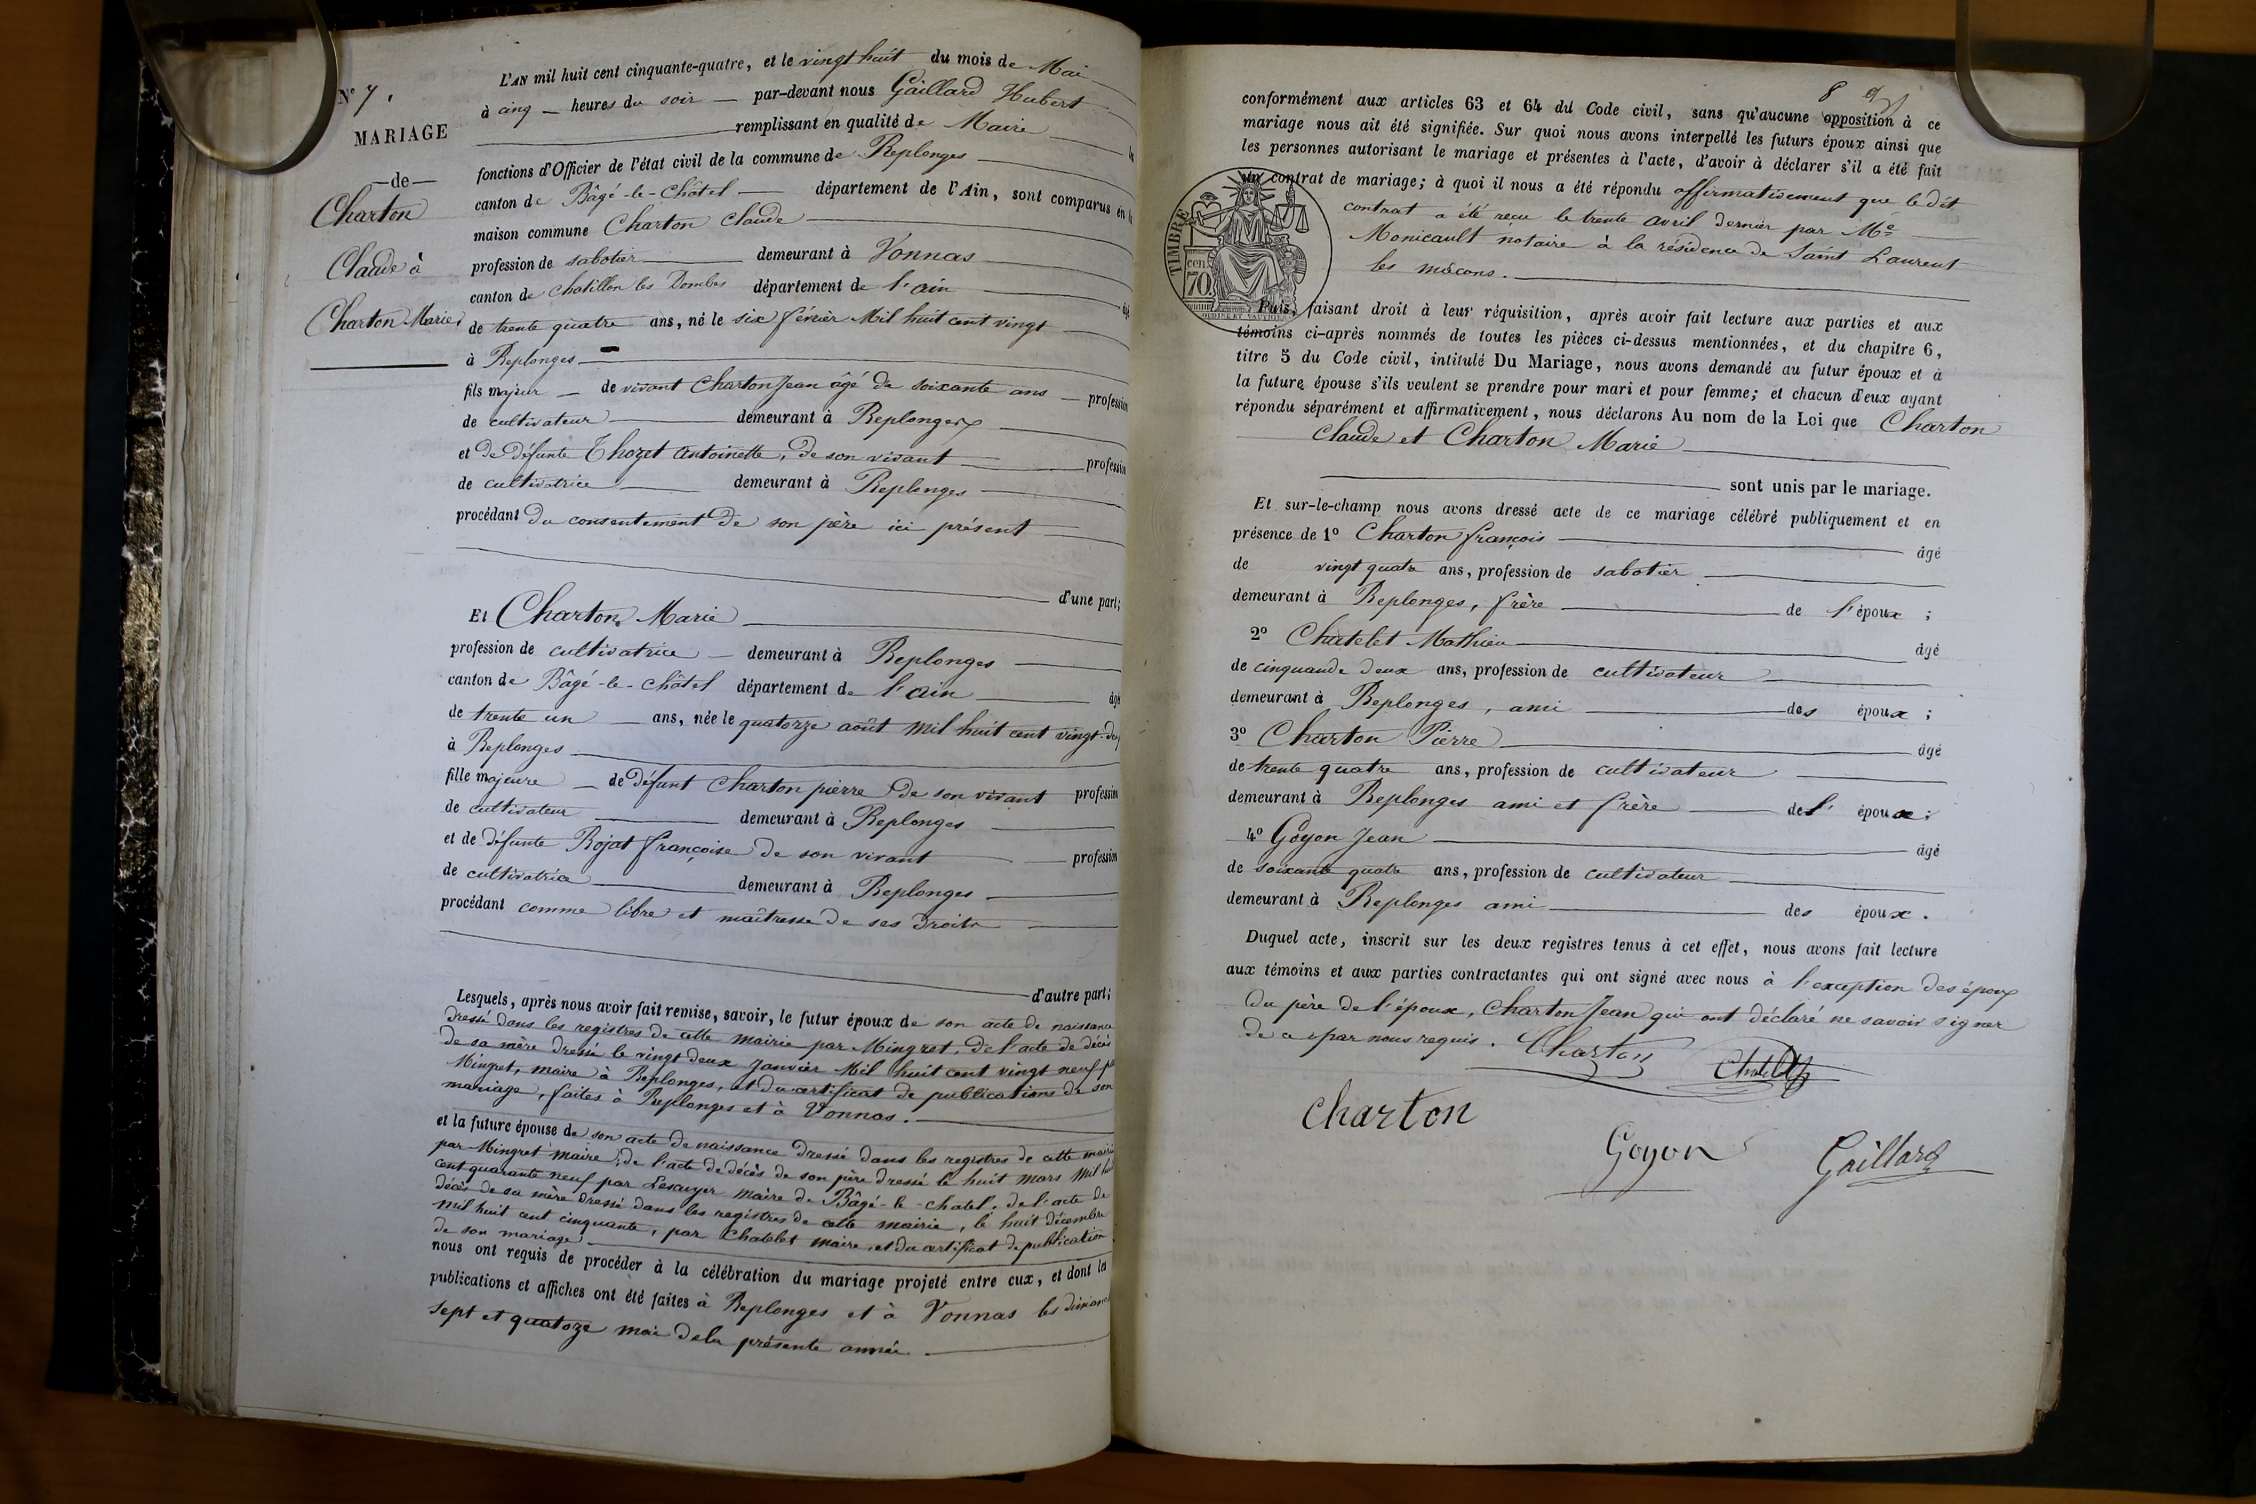 N° 7.
MARIAGE
—de—
Charton
Claude à
Charton Marie
L'AN mil huit cent cinquante-quatre, et le vingt huit du mois de Mai
à cinq heures du soir par-devant nous Gaillard Hubert
remplissant en qualité de Maire les
fonctions d'Officier de l'état civil de la commune de Replonges
canton de Bâgé-le-Châtel département de l'Ain, sont comparus en la
maison commune Charton Claude
profession de sabotier demeurant à Vonnas
canton de Chatillon les Dombes département de l'ain âgé
de trente quatre ans, né le six février Mil huit cent vingt
à Replonges
fils majeur de vivant Charton Jean âgé de soixante ans profession
de cultivateur demeurant à Replonges
et de défunte Thozet Antoinette, de son vivant profession
de cultivatrice demeurant à Replonges
procédant du consentement de son père ici présent
d'une part;
Et Charton Marie
profession de cultivatrice demeurant à Replonges
canton de Bâgé-le-Châtel département de l'ain âgé
de trente un ans, née le quatorze août Mil huit cent vingt-
à Replonges
fille majeure de défunt Charton pierre de son vivant profession
de cultivateur demeurant à Replonges
et de défunte Rojat françoise de son vivant profession
de cultivatrice demeurant à Replonges
procédant comme libre et maîtresse de ses droits
d'autre part;
Lesquels, après nous avoir fait remise, savoir, le futur époux de son acte de naissance
dressé dans les registres de cette mairie par Mingret, de l'acte de décès
de sa mère dressé le vingt deux Janvier Mil huit cent vingt neuf par
Mingret, maire à Replonges, et du certificat de publications de son
mariage, faites à Replonges et à Vonnas.
et la future épouse de son acte de naissance dressé dans les registres de cette mairie
par Mingret maire, de l'acte de décès de son père dressé le huit Mars Mil huit
cent quarante neuf par Lescuyer maire de Bâgé-le-chatel, de l'acte de
décès de sa mère dressé dans les registres de cette mairie, le huit décembre
mil huit cent cinquante, par Chatelet maire, et du certificat de publication
de son mariage
nous ont requis de procéder à la célébration du mariage projeté entre eux, et dont les
publications et affiches ont été faites à Replonges et à Vonnas les dimanches
sept et quatoze mai de la présente année.
8
conformément aux articles 63 et 64 du Code civil, sans qu'aucune opposition à ce
mariage nous ait été signifiée. Sur quoi nous avons interpellé les futurs époux ainsi que
les personnes autorisant le mariage et présentes à l'acte, d'avoir à déclarer s'il a été fait
un contrat de mariage; à quoi il nous a été répondu affirmativement que le dit
contrat a été reçu le trente avril dernier par Me
Monicault notaire à la résidence de Saint Laurent
les mâcons.
TIMBRE
cen
70.
Puis, faisant droit à leur réquisition, après avoir fait lecture aux parties et aux
témoins ci-après nommés de toutes les pièces ci-dessus mentionnées, et du chapitre 6,
titre 5 du Code civil, intitulé Du Mariage, nous avons demandé au futur époux et à
la future épouse s'ils veulent se prendre pour mari et pour femme; et chacun d'eux ayant
répondu séparément et affirmativement, nous déclarons Au nom de la Loi que Charton
Claude et Charton Marie
sont unis par le mariage.
Et sur-le-champ nous avons dressé acte de ce mariage célébré publiquement et en
présence de 1° Charton françois âgé
de vingt quatre ans, profession de sabotier
demeurant à Replonges, frère de l'époux ;
2° Chatelet Mathieu âgé
de cinquande deux ans, profession de cultivateur
demeurant à Replonges, ami des époux ;
3° Charton Pierre âgé
de trente quatre ans, profession de cultivateur
demeurant à Replonges ami et frère de l' époux ;
4° Goyon Jean âgé
de soixante quatre ans, profession de cultivateur
demeurant à Replonges ami des époux .
Duquel acte, inscrit sur les deux registres tenus à cet effet, nous avons fait lecture
aux témoins et aux parties contractantes qui ont signé avec nous à l'exception des époux
du père de l'époux, Charton Jean qui ont déclaré ne savoir signer
de ce par nous requis. Charton
Charton
Goyon Gaillard